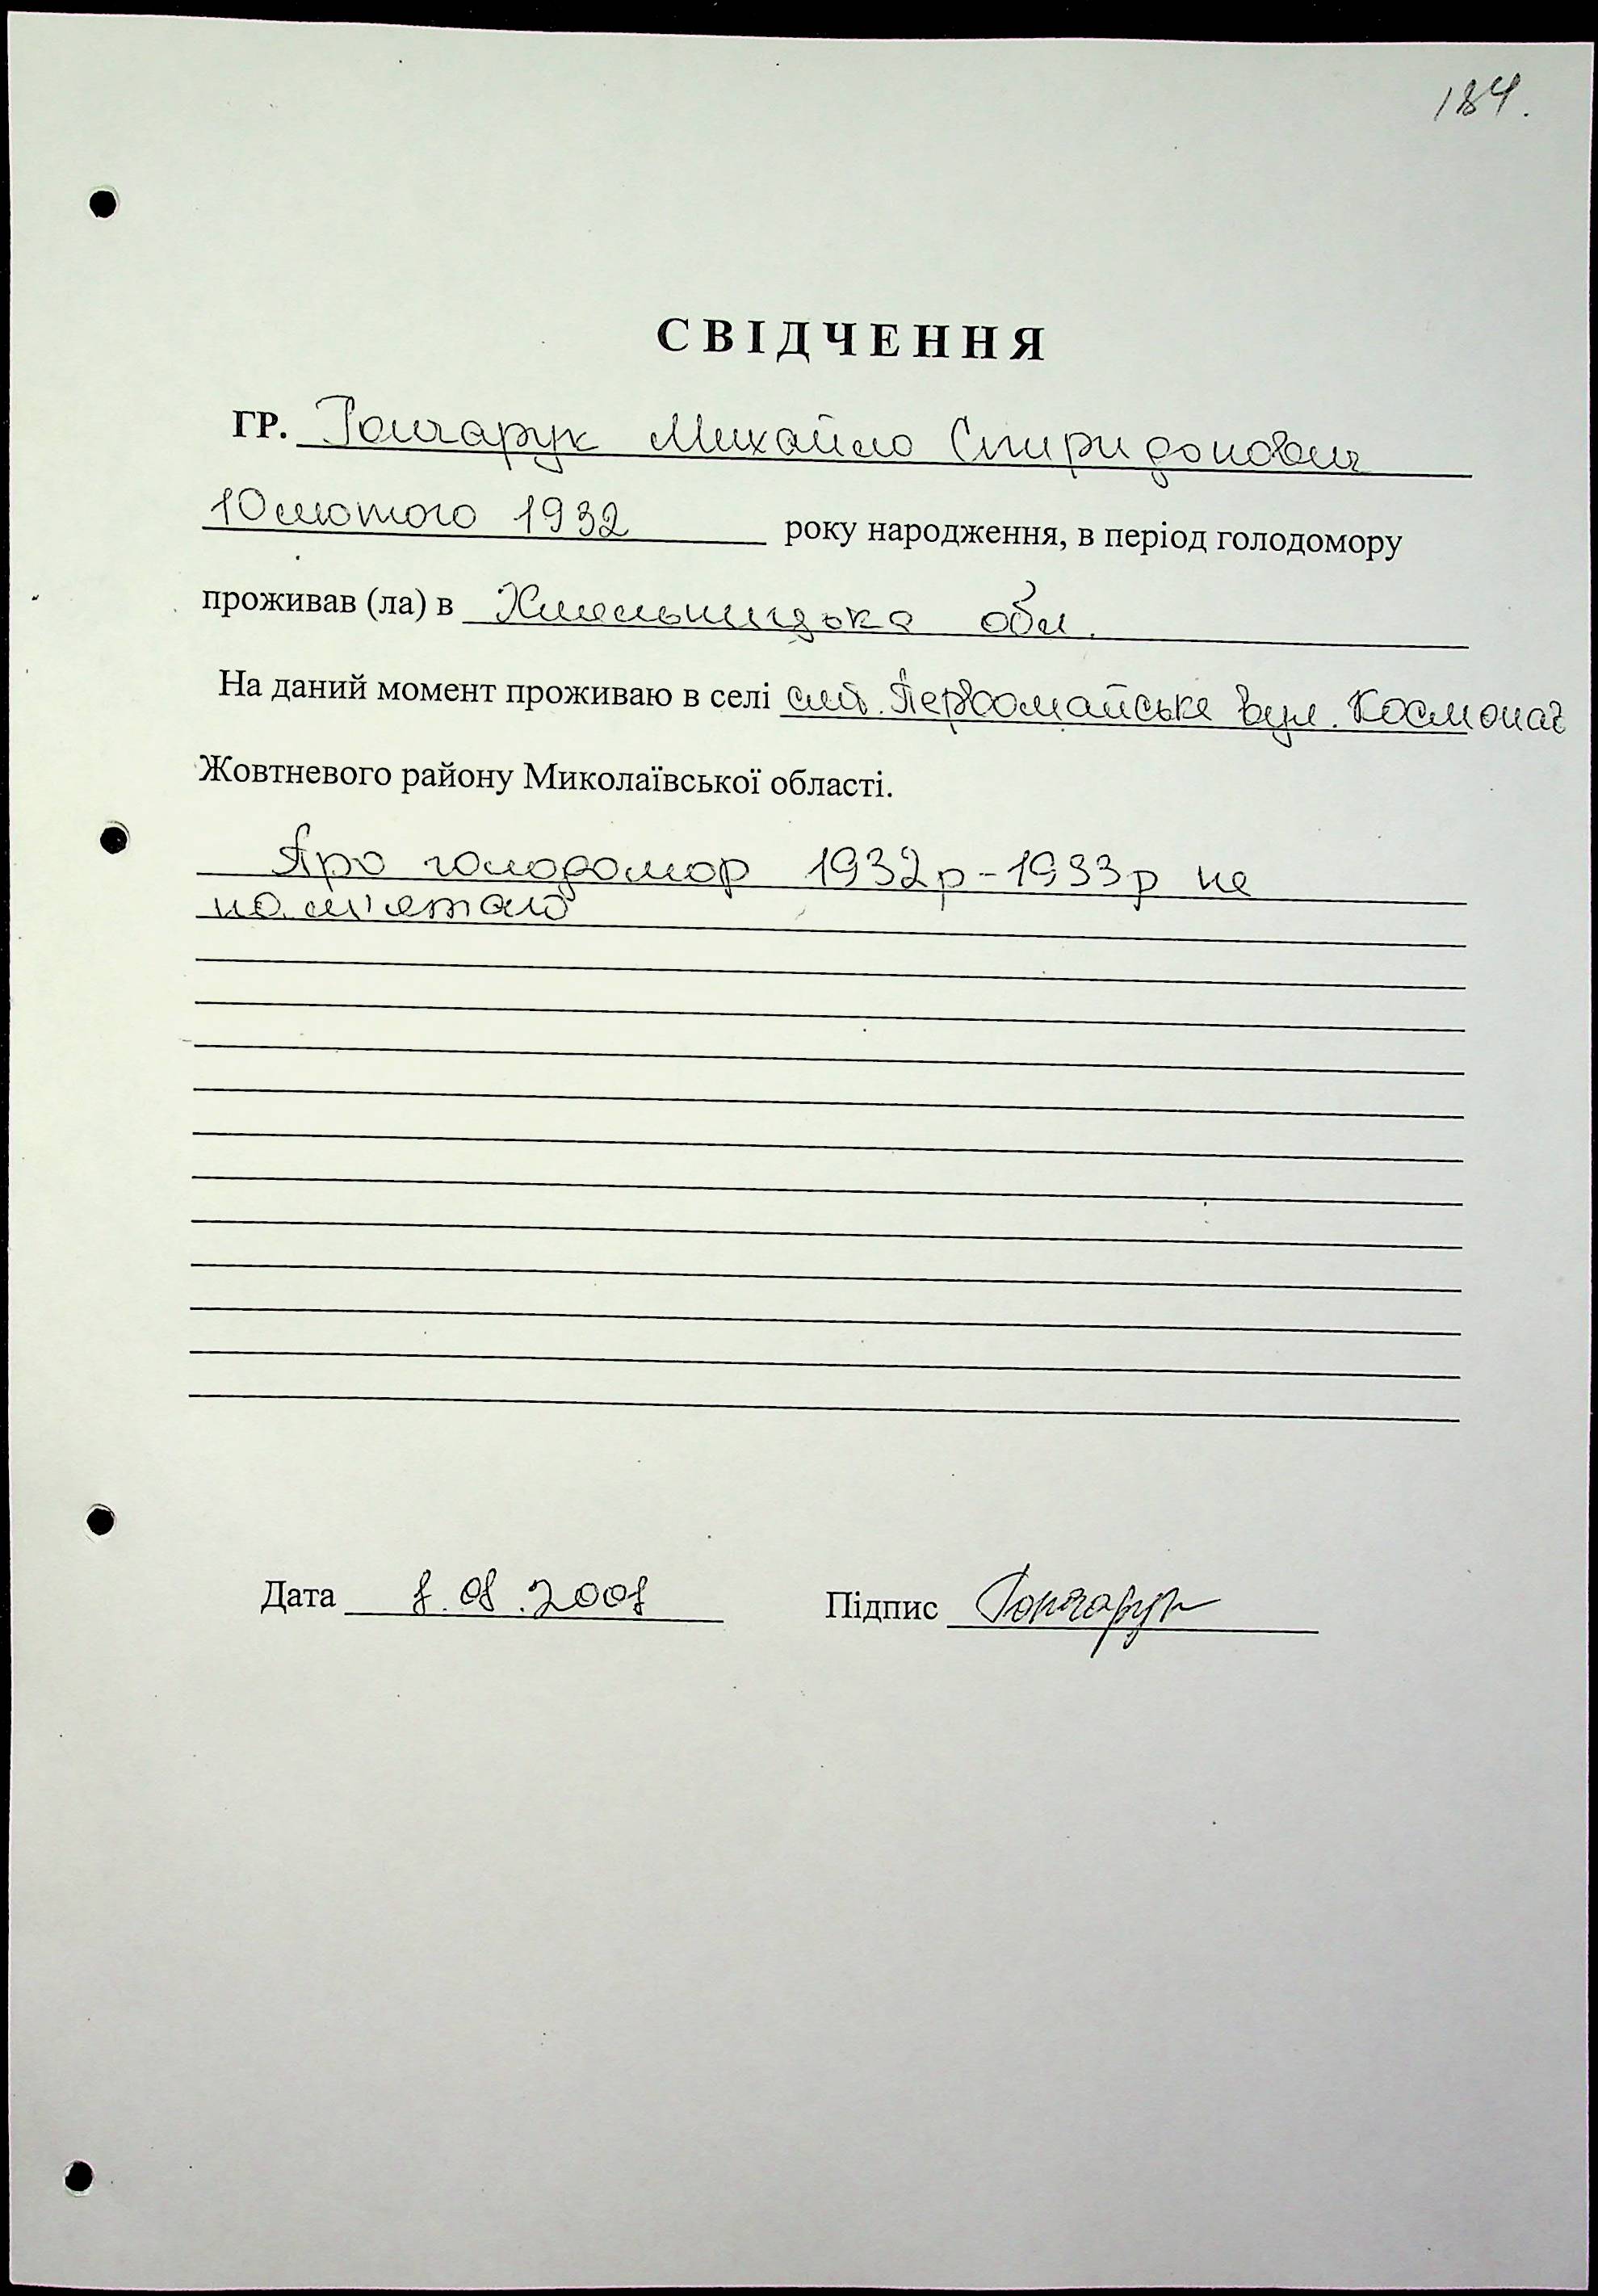 184.
СВІДЧЕННЯ
ГР. Гончарук Михайло Спиридонович
10 лютого 1932 року народження, в період голодомору
проживав (ла) в Хмельницька обл.
На даний момент проживаю в селі смт. Первомайське вул. Космонав
Жовтневого району Миколаївської області.
Про голодомор 1932р-1933р не
пам'ятаю
Дата 8.08.2008 Підпис Гончарук